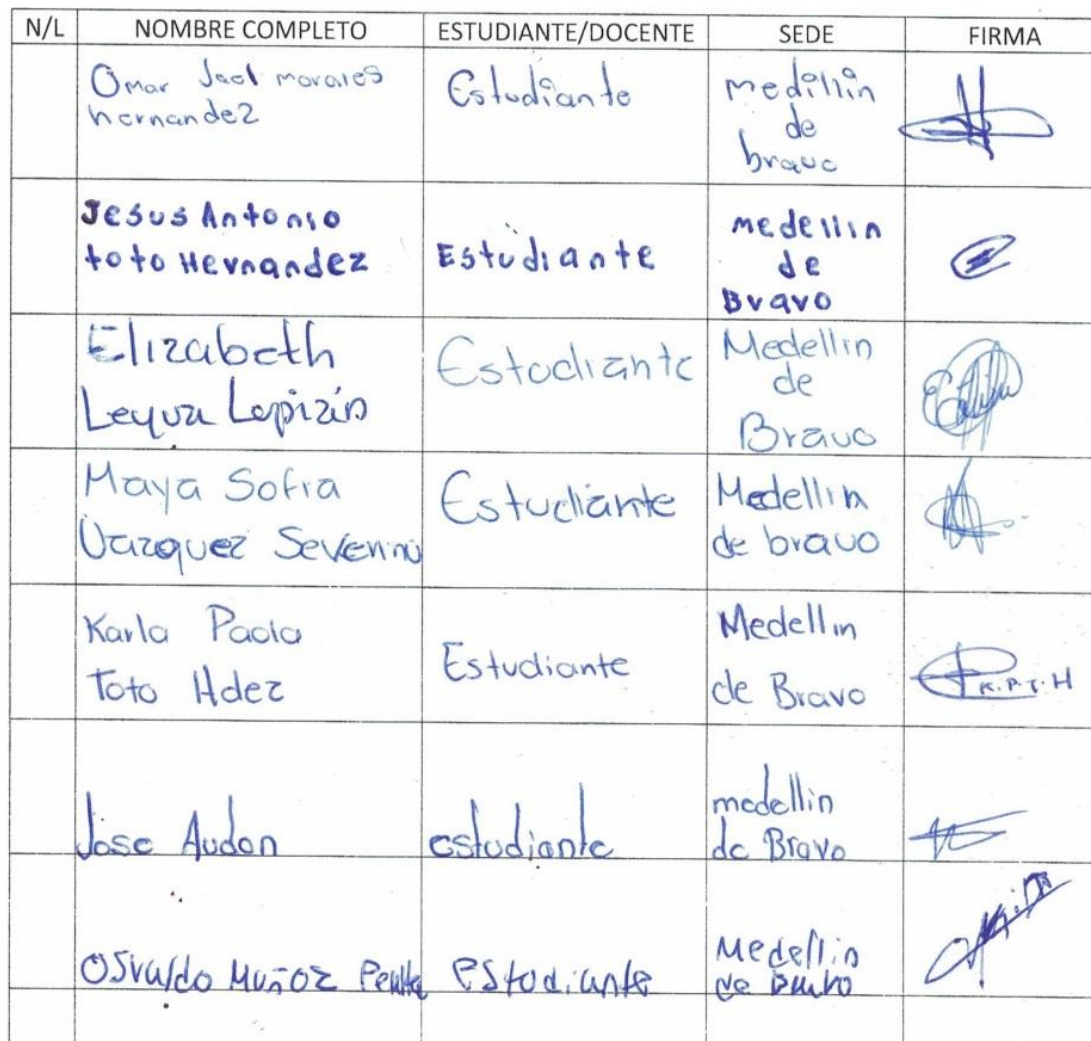 N/L NOMBRE COMPLETO ESTUDIANTE/DOCENTE SEDE FIRMA
Omar Jael morales
hernandez
Estudiante
medillin
de
bravo
Jesus Antonio
toto Hernandez
Estudiante
medellin
de
Bravo
Elizabeth
Leyva
Estudiante
Medellin
de
Bravo
Maya Sofia
Vazquez Severino
Estudiante
Medellin
de bravo
Karla Paola
Toto Hdez
Estudiante
Medellin
de Bravo
K.P.T.H
Jose Audon
estudiante
medellin
de Bravo
Osvaldo Muñoz
estudiante
Medellin
de